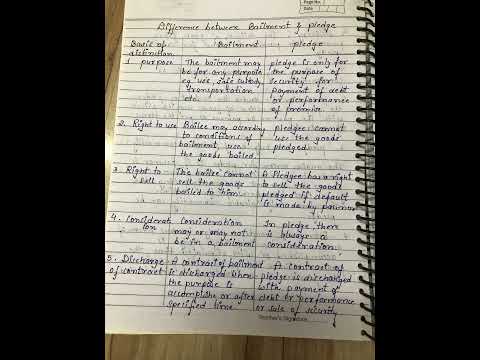 Page No.
Date
Difference between Bailment & pledge
Basis of distinction | Bailment | pledge
1. purpose | The bailment may | pledge is only for
be for any purpose | the purpose of
eg use, safe custody, | security for
transportation | payment of debt
etc. | or performance
of promise.
2. Right to use | Bailee may according | pledgee cannot
to conditions of | use the goods
bailment use | pledged.
the goods bailed.
3. Right to | The bailee cannot | A Pledgee has a right
sell | sell the goods | to sell the goods
bailed to him | pledged if default
is made by pawnor
4. Considerat | Consideration | In pledge, there
ion | may or may not | is always a
be in a bailment | consideration.
5. Discharge | A contract of bailment | A contract of
of contract | is discharged when | pledge is discharged
the purpose is | with payment of
accomplish or after | debt or performance
specified time | or sale of security
Teacher's Signature